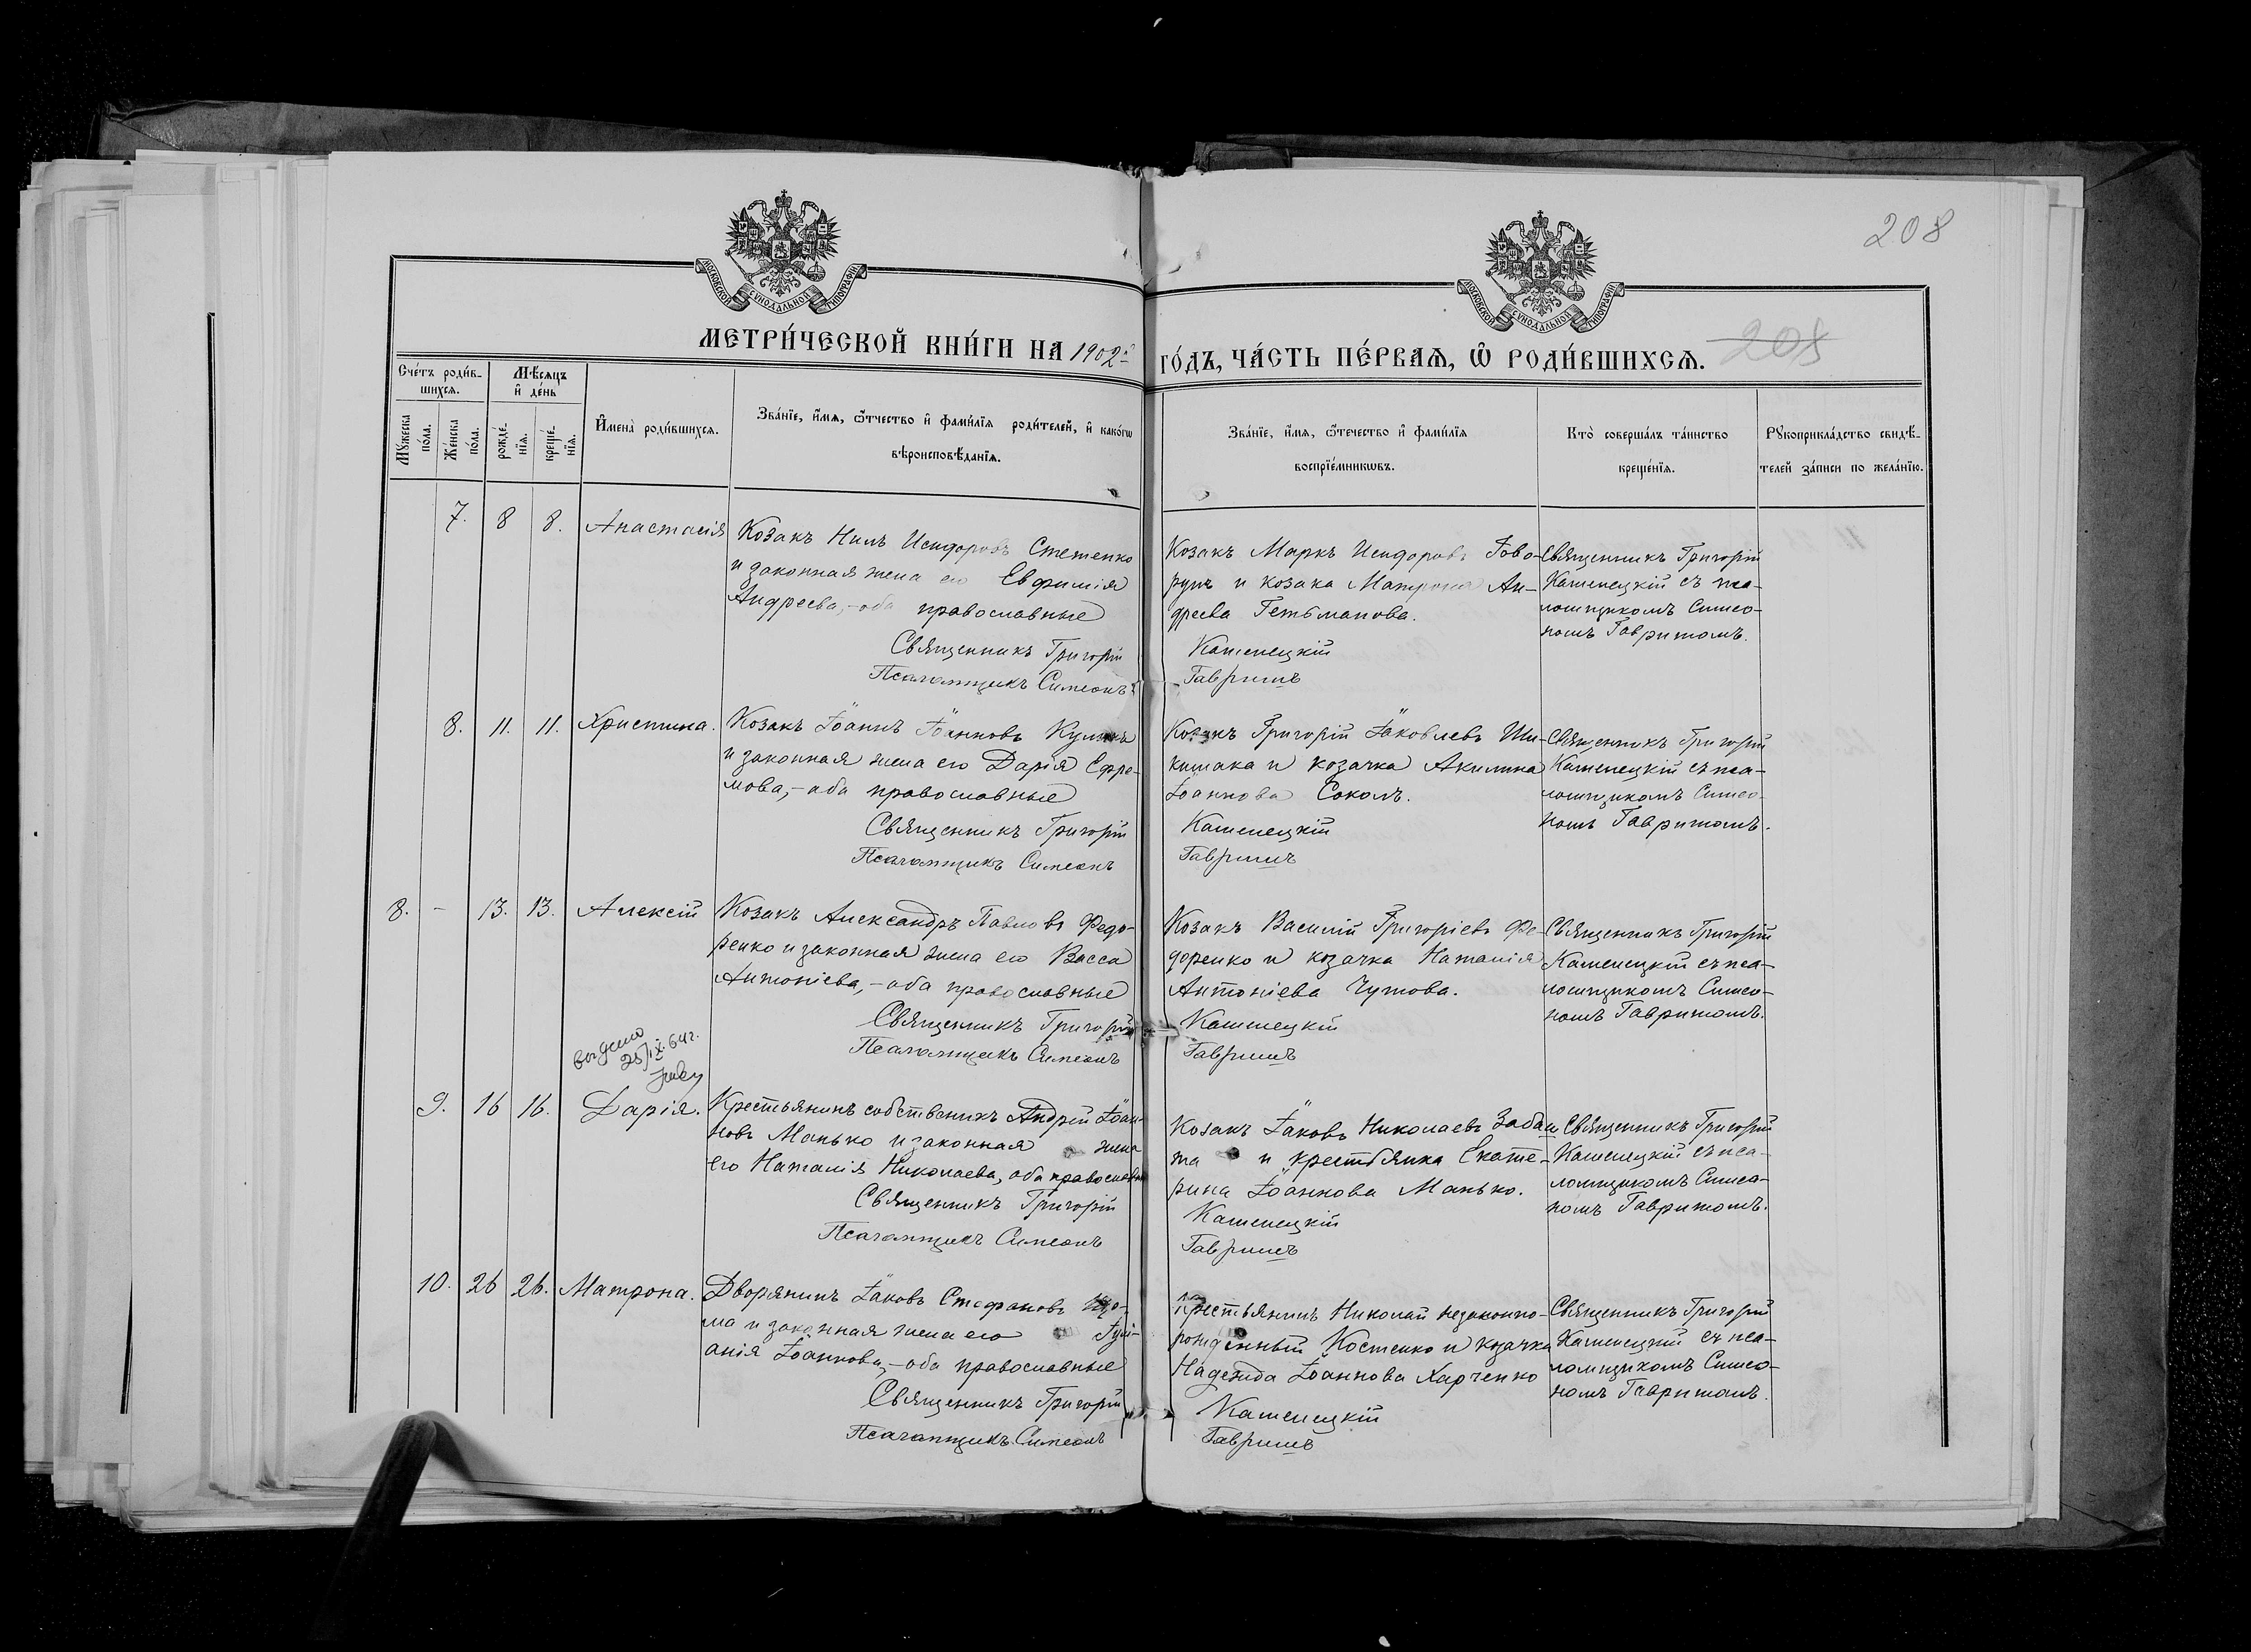 208
МОСКОВСКОЙ СУНОДАЛЬНОЙ ТИПОГРАФІИ
МОСКОВСКОЙ СУНОДАЛЬНОЙ ТИПОГРАФІИ
МЕТРИ́ЧЕСКОЙ КНИ́ГИ НА 1902й
ГО́ДЪ, ЧА́СТЬ ПЕ́РВАѦ, Ѡ РОДИ́ВШИХСѦ.
208
Сче́тъ роди́в-
шихсѧ.
Мѣ́сѧцъ
и҆ де́нь
Мꙋ́жеска
по́ла.
Же́нска
по́ла.
рожде́-
нїѧ.
креще́-
нїѧ.
И҆мена̀ роди́вшихсѧ.
Зва́нїе, и҆́мѧ, ѻ҆́тчество и҆ фами́лїѧ роди́телей, и҆ како́гѡ
вѣроисповѣ́данїѧ.
Зва́нїе, и҆́мѧ, ѻ҆́течество и҆ фами́лїѧ
воспрїе́мникѡвъ.
Кто̀ соверша́лъ та́инство
креще́нїѧ.
Рꙋкоприкла́дство свидѣ́-
телей за́писи по жела́нїю.
7. 8 8. Анастасія
Козакъ Нилъ Исидоровъ Стеценко
и законная жена его Евфимія
Андреева,-оба православные
Священникъ Григорій
Псаломщикъ Симеонъ
Козакъ Маркъ Исидоровъ Гово-
рунъ и козака Матрона Ан-
дреева Гетьманова.
Каменецкій
Гавришъ
Священникъ Григорій
Каменецкій съ пса-
ломщикомъ Симео-
номъ Гавришомъ.
8. 11. 11. Христина.
Козакъ Іоаннъ Іоанновъ
и законная жена его Дарія Ефре-
мова,-оба православные
Священникъ Григорій
Псаломщикъ Симеонъ
Козакъ Григорій Іаковлевъ Ши-
кимака и козачка Акилина
Іоаннова Соколъ.
Каменецкій
Гавришъ
Священникъ Григорій
Каменецкій съ пса-
ломщикомъ Симео-
номъ Гавришомъ.
8. - 13. 13. Алексій
Козакъ Александръ Павловъ Федо-
ренко и законная жена его Васса
Антоніева,-оба православные
Священникъ Григорій
Псаломщикъ Симеонъ
Козакъ Василій Григоріевъ Фе-
доренко и козачка Наталія
Антоніева Чутова.
Каменецкій
Гавришъ
Священникъ Григорій
Каменецкій съ пса-
ломщикомъ Симео-
номъ Гавришомъ.
выдано
25/IX.64г.
9. 16 16. Дарія.
Крестьянинъ собственикъ Андрей Іоан-
новъ Манько и законная жена
его Наталія Николаева, оба православн
Священникъ Григорій
Псаломщикъ Симеонъ
Козакъ Іаковъ Николаевъ
та и крестьянка Екате-
рина Іоаннова Манько.
Каменецкій
Гавришъ
Священникъ Григорій
Каменецкій съ пса-
ломщикомъ Симео-
номъ Гавришомъ.
10. 26 26. Матрона.
Дворянинъ Іаковъ Стефановъ
ма и законная жена его Іулі-
анія Іоаннова,-оба православные
Священникъ Григорій
Псаломщикъ Симеонъ
Крестьянинъ Николай незаконно-
рожденный Костенко и козачка
Надежда Іоаннова Харченко
Каменецкій
Гавришъ
Священникъ Григорій
Каменецкій съ пса-
ломщикомъ Симео-
номъ Гавришомъ.